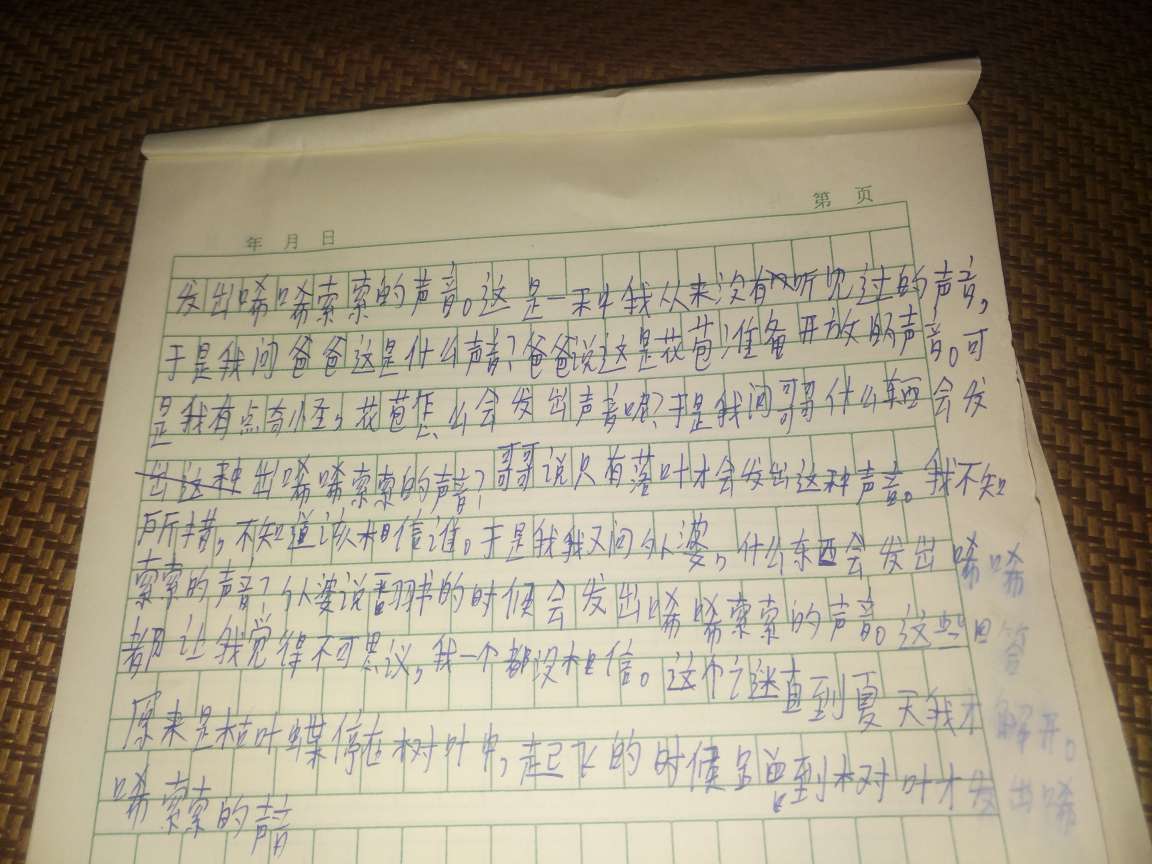 第 页
年 月 日
发出唏唏索索的声音。这是一种我从来没有听见过的声音,
于是我问爸爸这是什么声音?爸爸说这是花苞准备开放的声音。可
是我有点奇怪,花苞怎么会发出声音呢?于是我问哥哥什么东西会发
出这种出唏唏索索的声音?哥哥说只有落叶才会发出这种声音。我不知
所措,不知道该相信谁。于是我我又问外婆,什么东西会发出唏唏
索索的声音?外婆说翻书的时候会发出唏唏索索的声音。这些回答
都让我觉得不可思议,我一个都没相信。这个谜直到夏天我才解开。
原来是枯叶蝶停在树叶中,起飞的时候会碰到树叶才发出唏
唏索索的声音